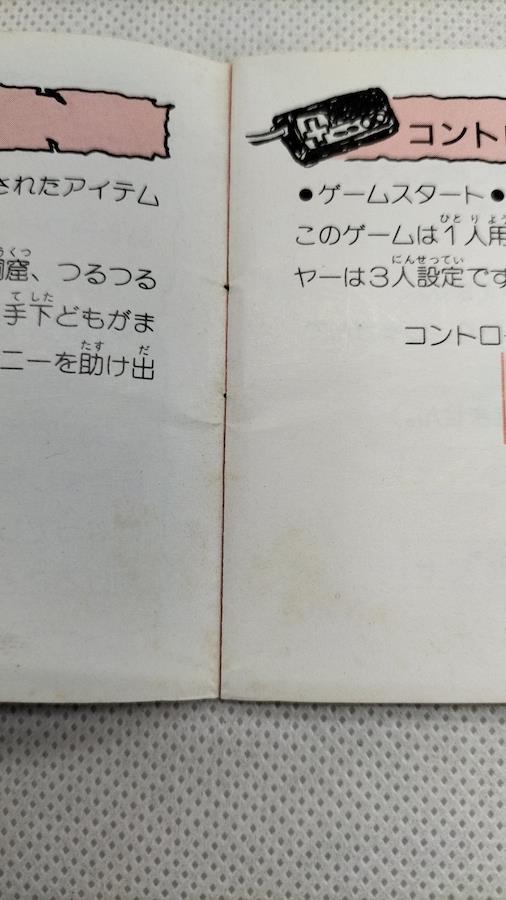 されたアイテム
窟、つるつる
手下どもがま
ニーを助け出
コントロ
●ゲームスタート●
このゲームは1人用
ヤーは3人設定です
コントロー